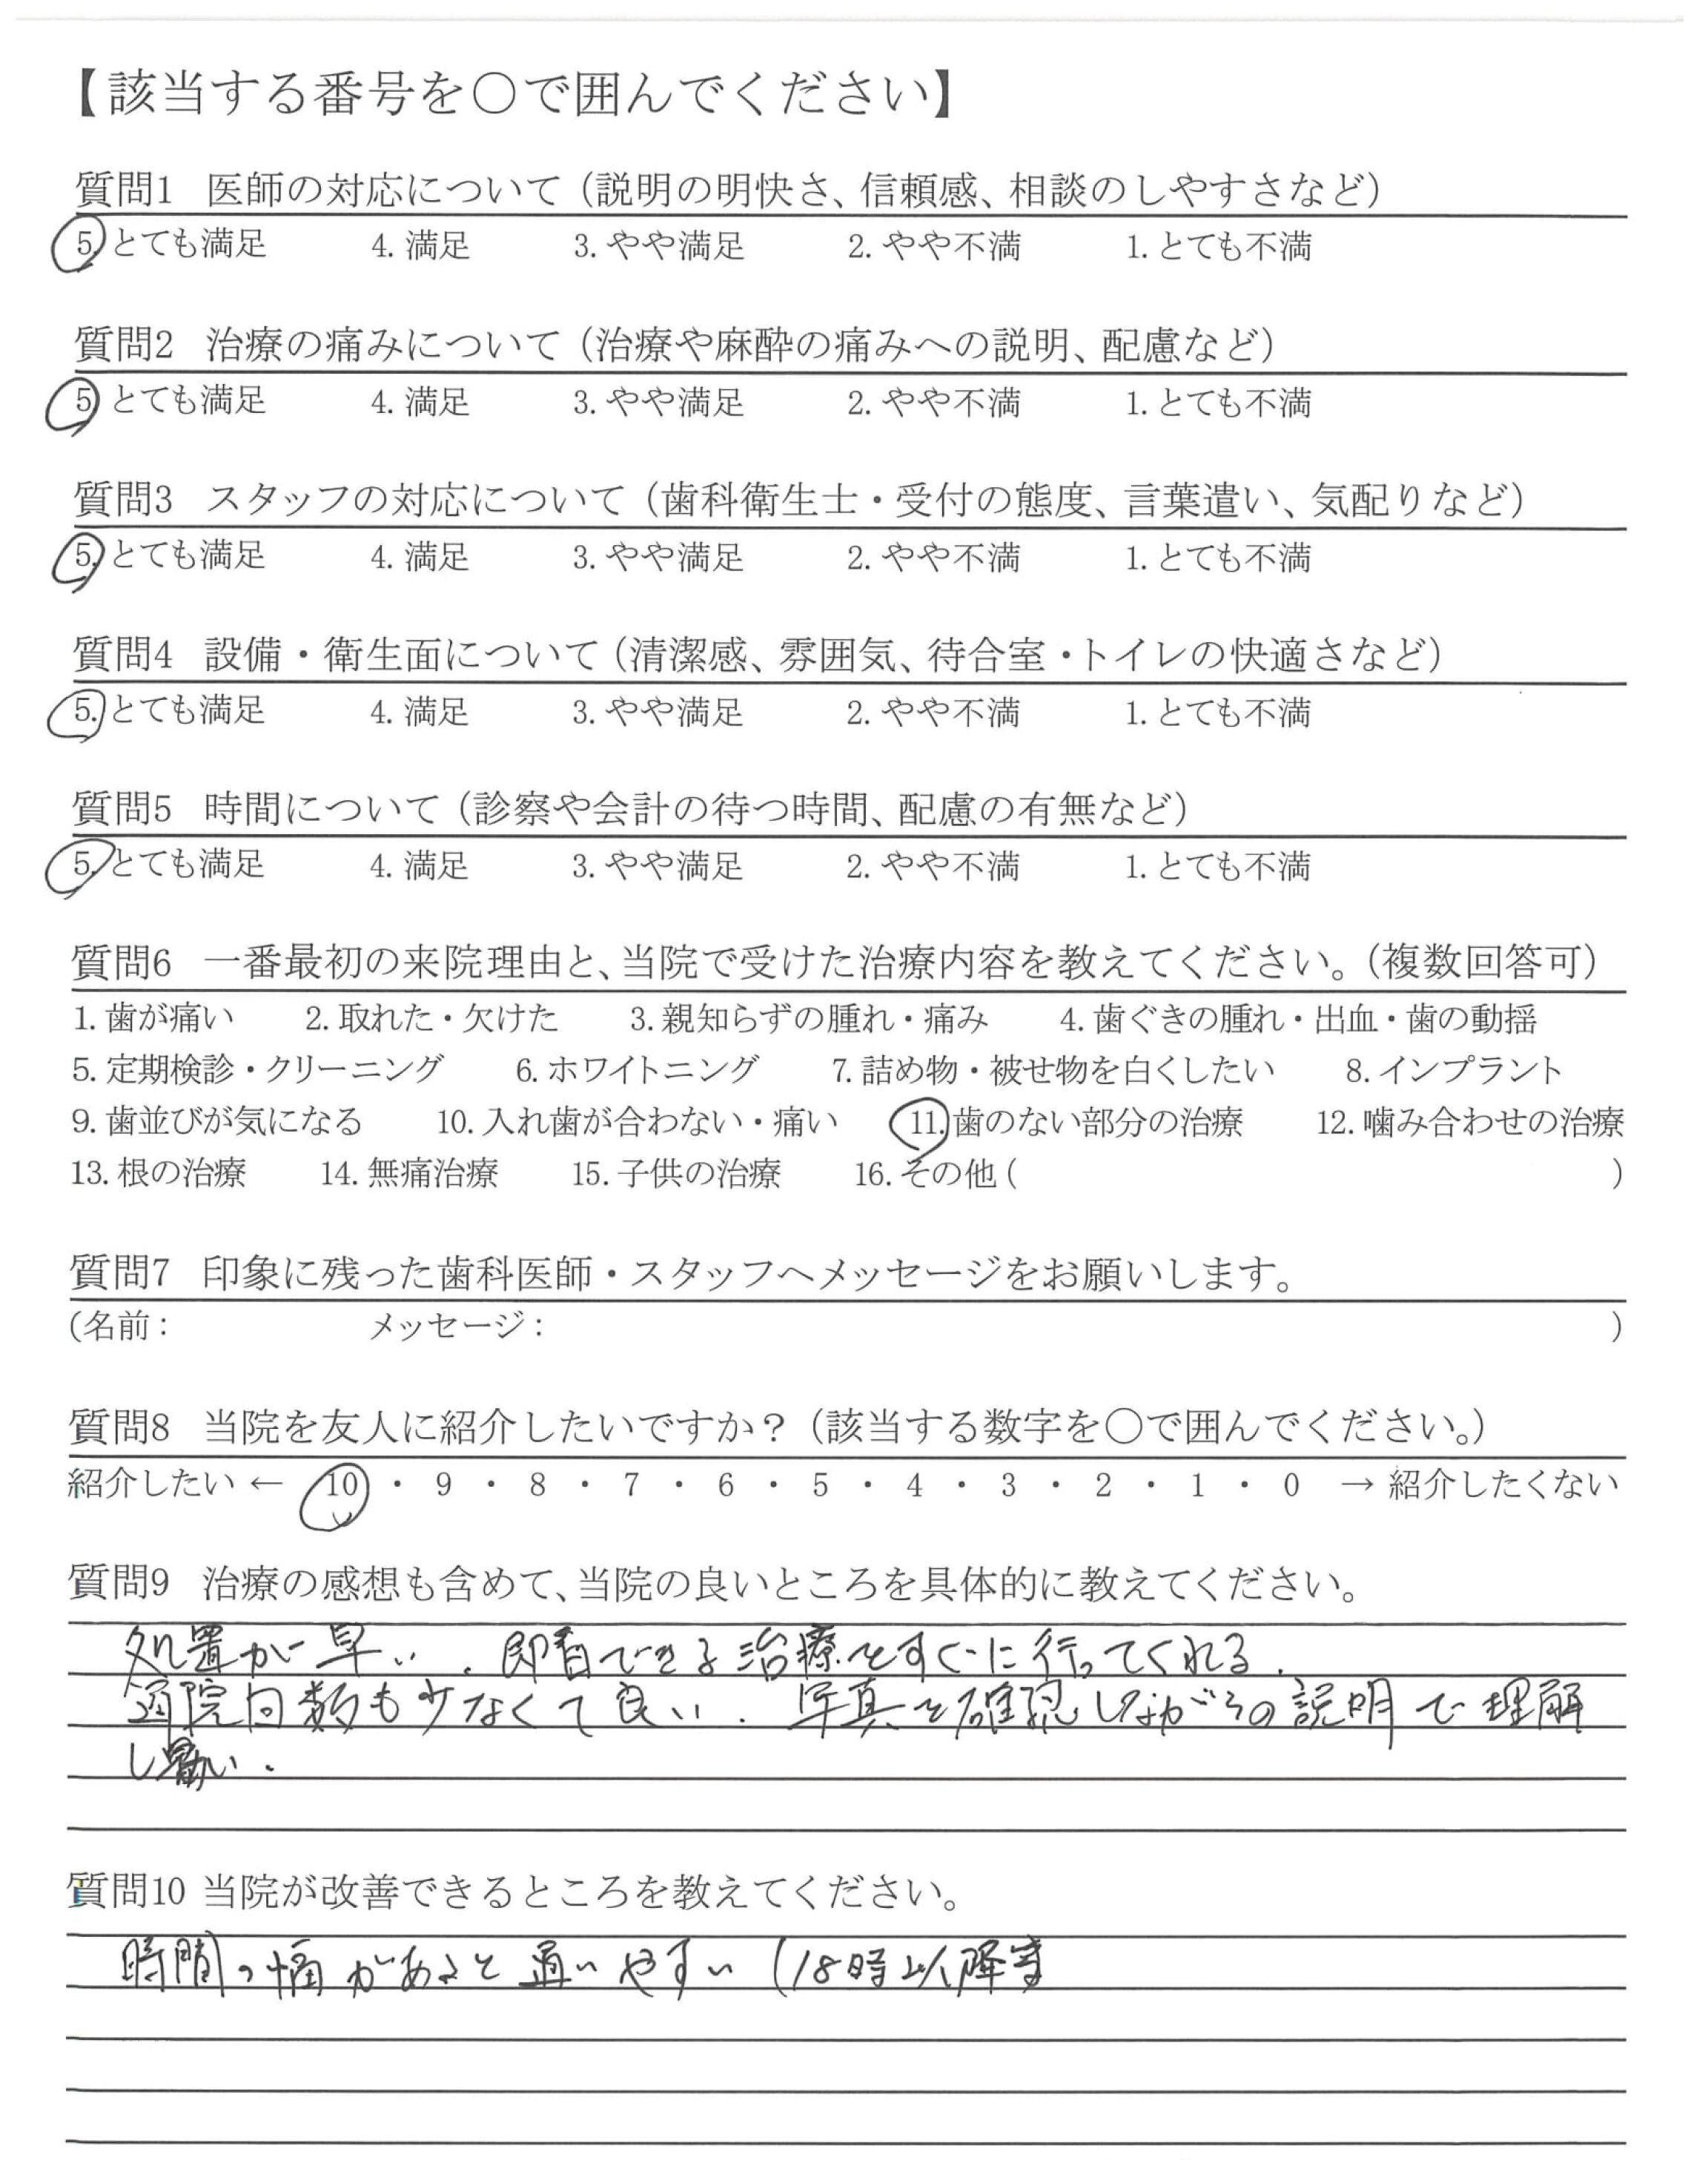 【該当する番号を〇で囲んでください】
質問1 医師の対応について（説明の明快さ、信頼感、相談のしやすさなど）
5. とても満足 4. 満足 3. やや満足 2. やや不満 1. とても不満
質問2 治療の痛みについて（治療や麻酔の痛みへの説明、配慮など）
5. とても満足 4. 満足 3. やや満足 2. やや不満 1. とても不満
質問3 スタッフの対応について（歯科衛生士・受付の態度、言葉遣い、気配りなど）
5. とても満足 4. 満足 3. やや満足 2. やや不満 1. とても不満
質問4 設備・衛生面について（清潔感、雰囲気、待合室・トイレの快適さなど）
5. とても満足 4. 満足 3. やや満足 2. やや不満 1. とても不満
質問5 時間について（診察や会計の待つ時間、配慮の有無など）
5. とても満足 4. 満足 3. やや満足 2. やや不満 1. とても不満
質問6 一番最初の来院理由と、当院で受けた治療内容を教えてください。（複数回答可）
1. 歯が痛い 2. 取れた・欠けた 3. 親知らずの腫れ・痛み 4. 歯ぐきの腫れ・出血・歯の動揺
5. 定期検診・クリーニング 6. ホワイトニング 7. 詰め物・被せ物を白くしたい 8. インプラント
9. 歯並びが気になる 10. 入れ歯が合わない・痛い 11. 歯のない部分の治療 12. 噛み合わせの治療
13. 根の治療 14. 無痛治療 15. 子供の治療 16. その他 ( )
質問7 印象に残った歯科医師・スタッフへメッセージをお願いします。
(名前： メッセージ： )
質問8 当院を友人に紹介したいですか？（該当する数字を〇で囲んでください。）
紹介したい ← 10 ・ 9 ・ 8 ・ 7 ・ 6 ・ 5 ・ 4 ・ 3 ・ 2 ・ 1 ・ 0 → 紹介したくない
質問9 治療の感想も含めて、当院の良いところを具体的に教えてください。
処置が早い. できる治療をすぐに行ってくれる.
通院回数も少なくて良い. 写真を確認しながらの説明で理解
し易い.
質問10 当院が改善できるところを教えてください。
時間の幅があると通いやすい (18時以降等